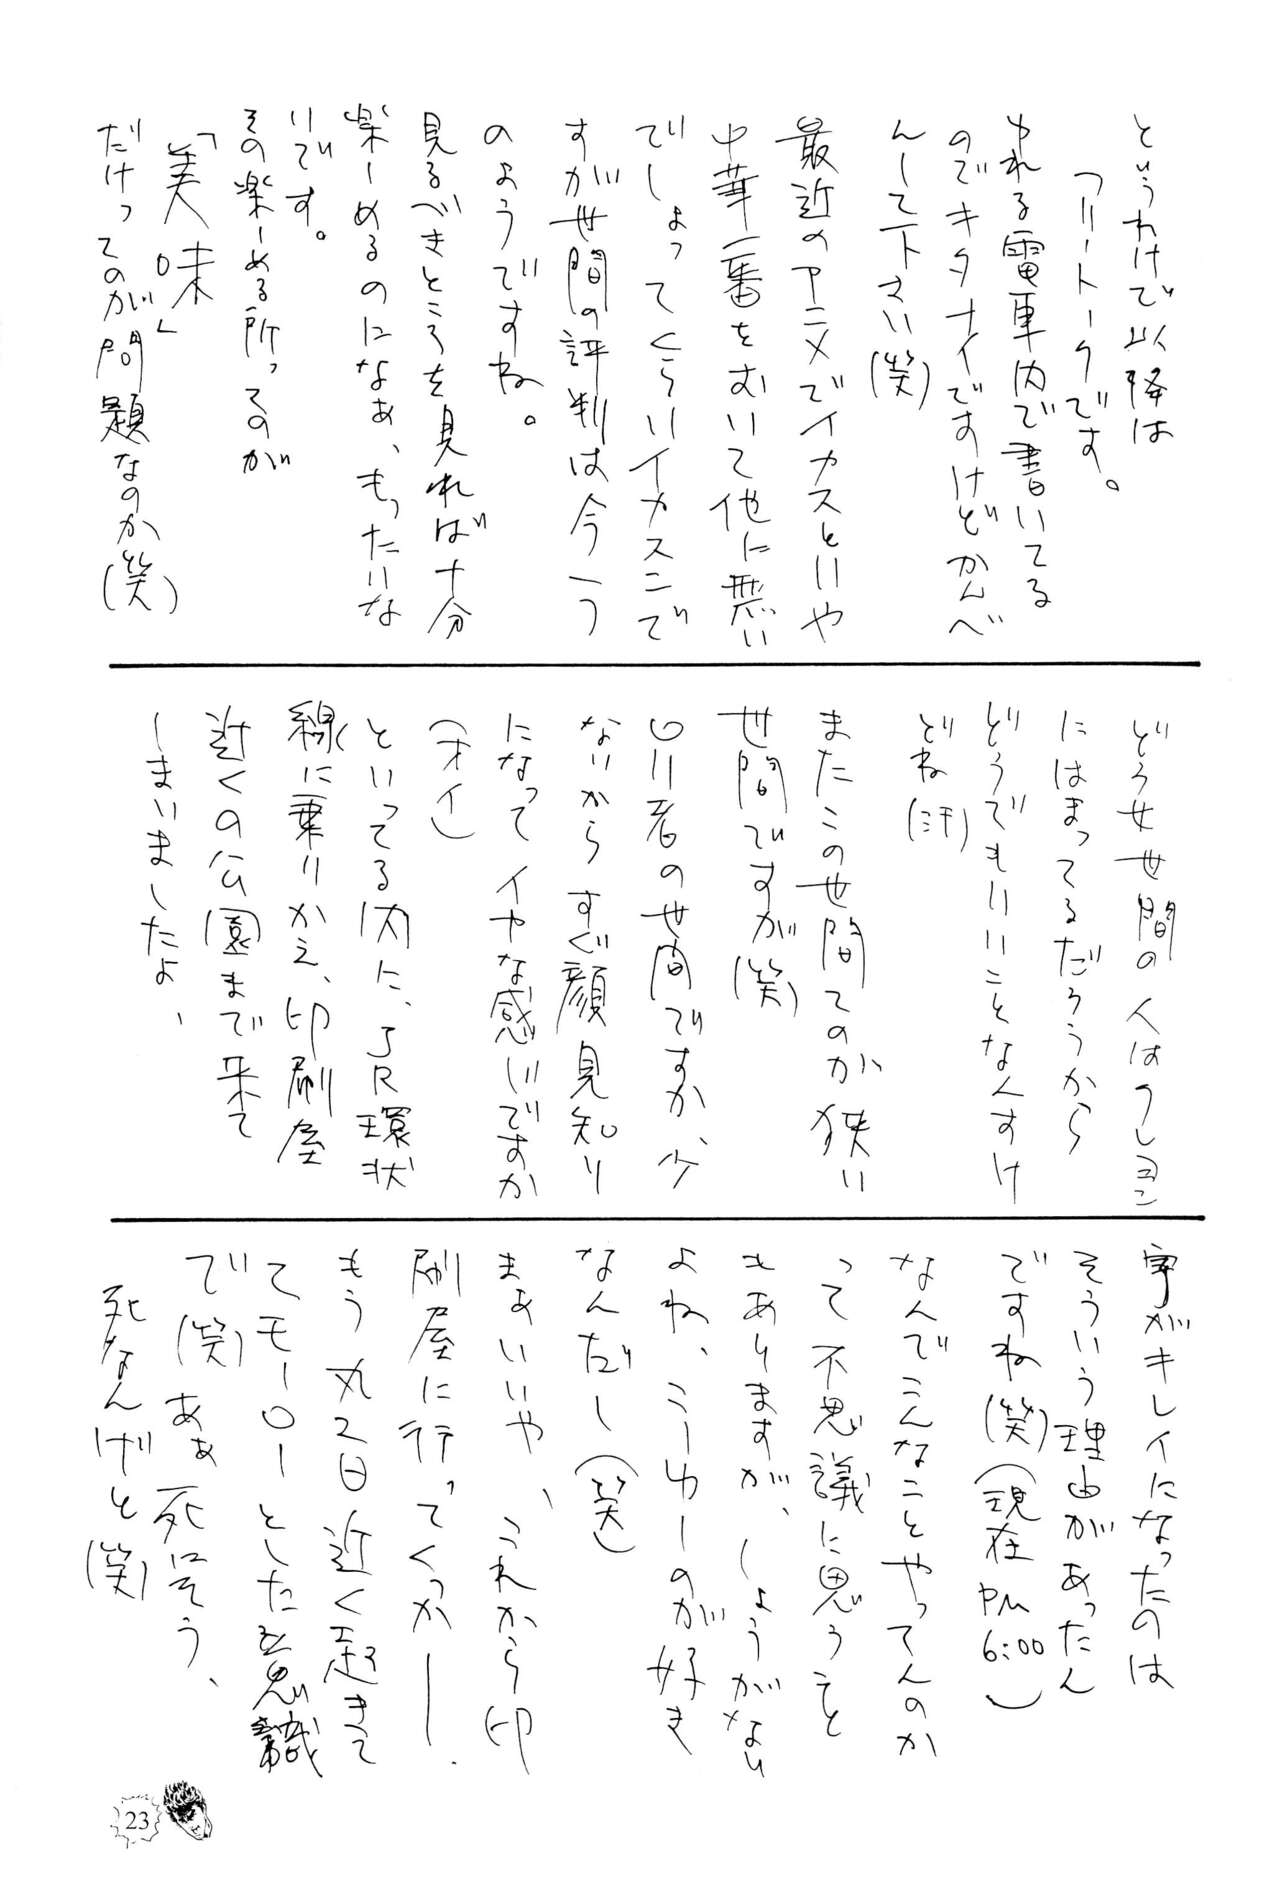 というわけで以降は
フリートークです。
ゆれる電車内で書いてる
のでキタナイですけどかんべ
んして下さい(笑)
最近のアニメでイカスといや
中華一番をおいて他に悪い
でしょってくらいイカスンで
すが世間の評判は今一つ
のようですね。
見るべきところを見れば十分
楽しめるのになぁ、もったいな
いです。
その楽しめる所ってのが
「美味」
だけってのが問題なのか(笑)
どうせ世間の人はクレヨン
にはまってるだろうから
どうでもいいことなんすけ
どね(汗)
またこの世間てのが狭い
世間ですが(笑)
ロリ者の世間ですか、少
ないからすぐ顔見知り
になってイヤな感じですか
(オイ)
といってる内に、JR環状
線に乗りかえ、印刷屋
近くの公園まで来て
しまいましたよ、
字がキレイになったのは
そういう理由があったん
ですね(笑)(現在PM6:00)
なんでこんなことやってんのか
って不思議に思うこと
もありますが、しょうがない
よね、こーゆーのが好き
なんだし(笑)
まぁいいや、これから印
刷屋に行ってくっかー.
もう丸2日近く起きて
てモーローとした意識
で(笑)あぁ死にそう、
死なんけど(笑)
23